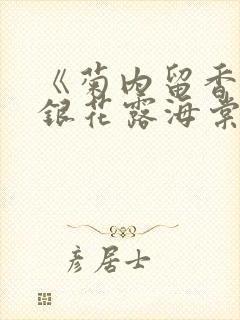 《菊内留香
銀花露海棠
彦居士